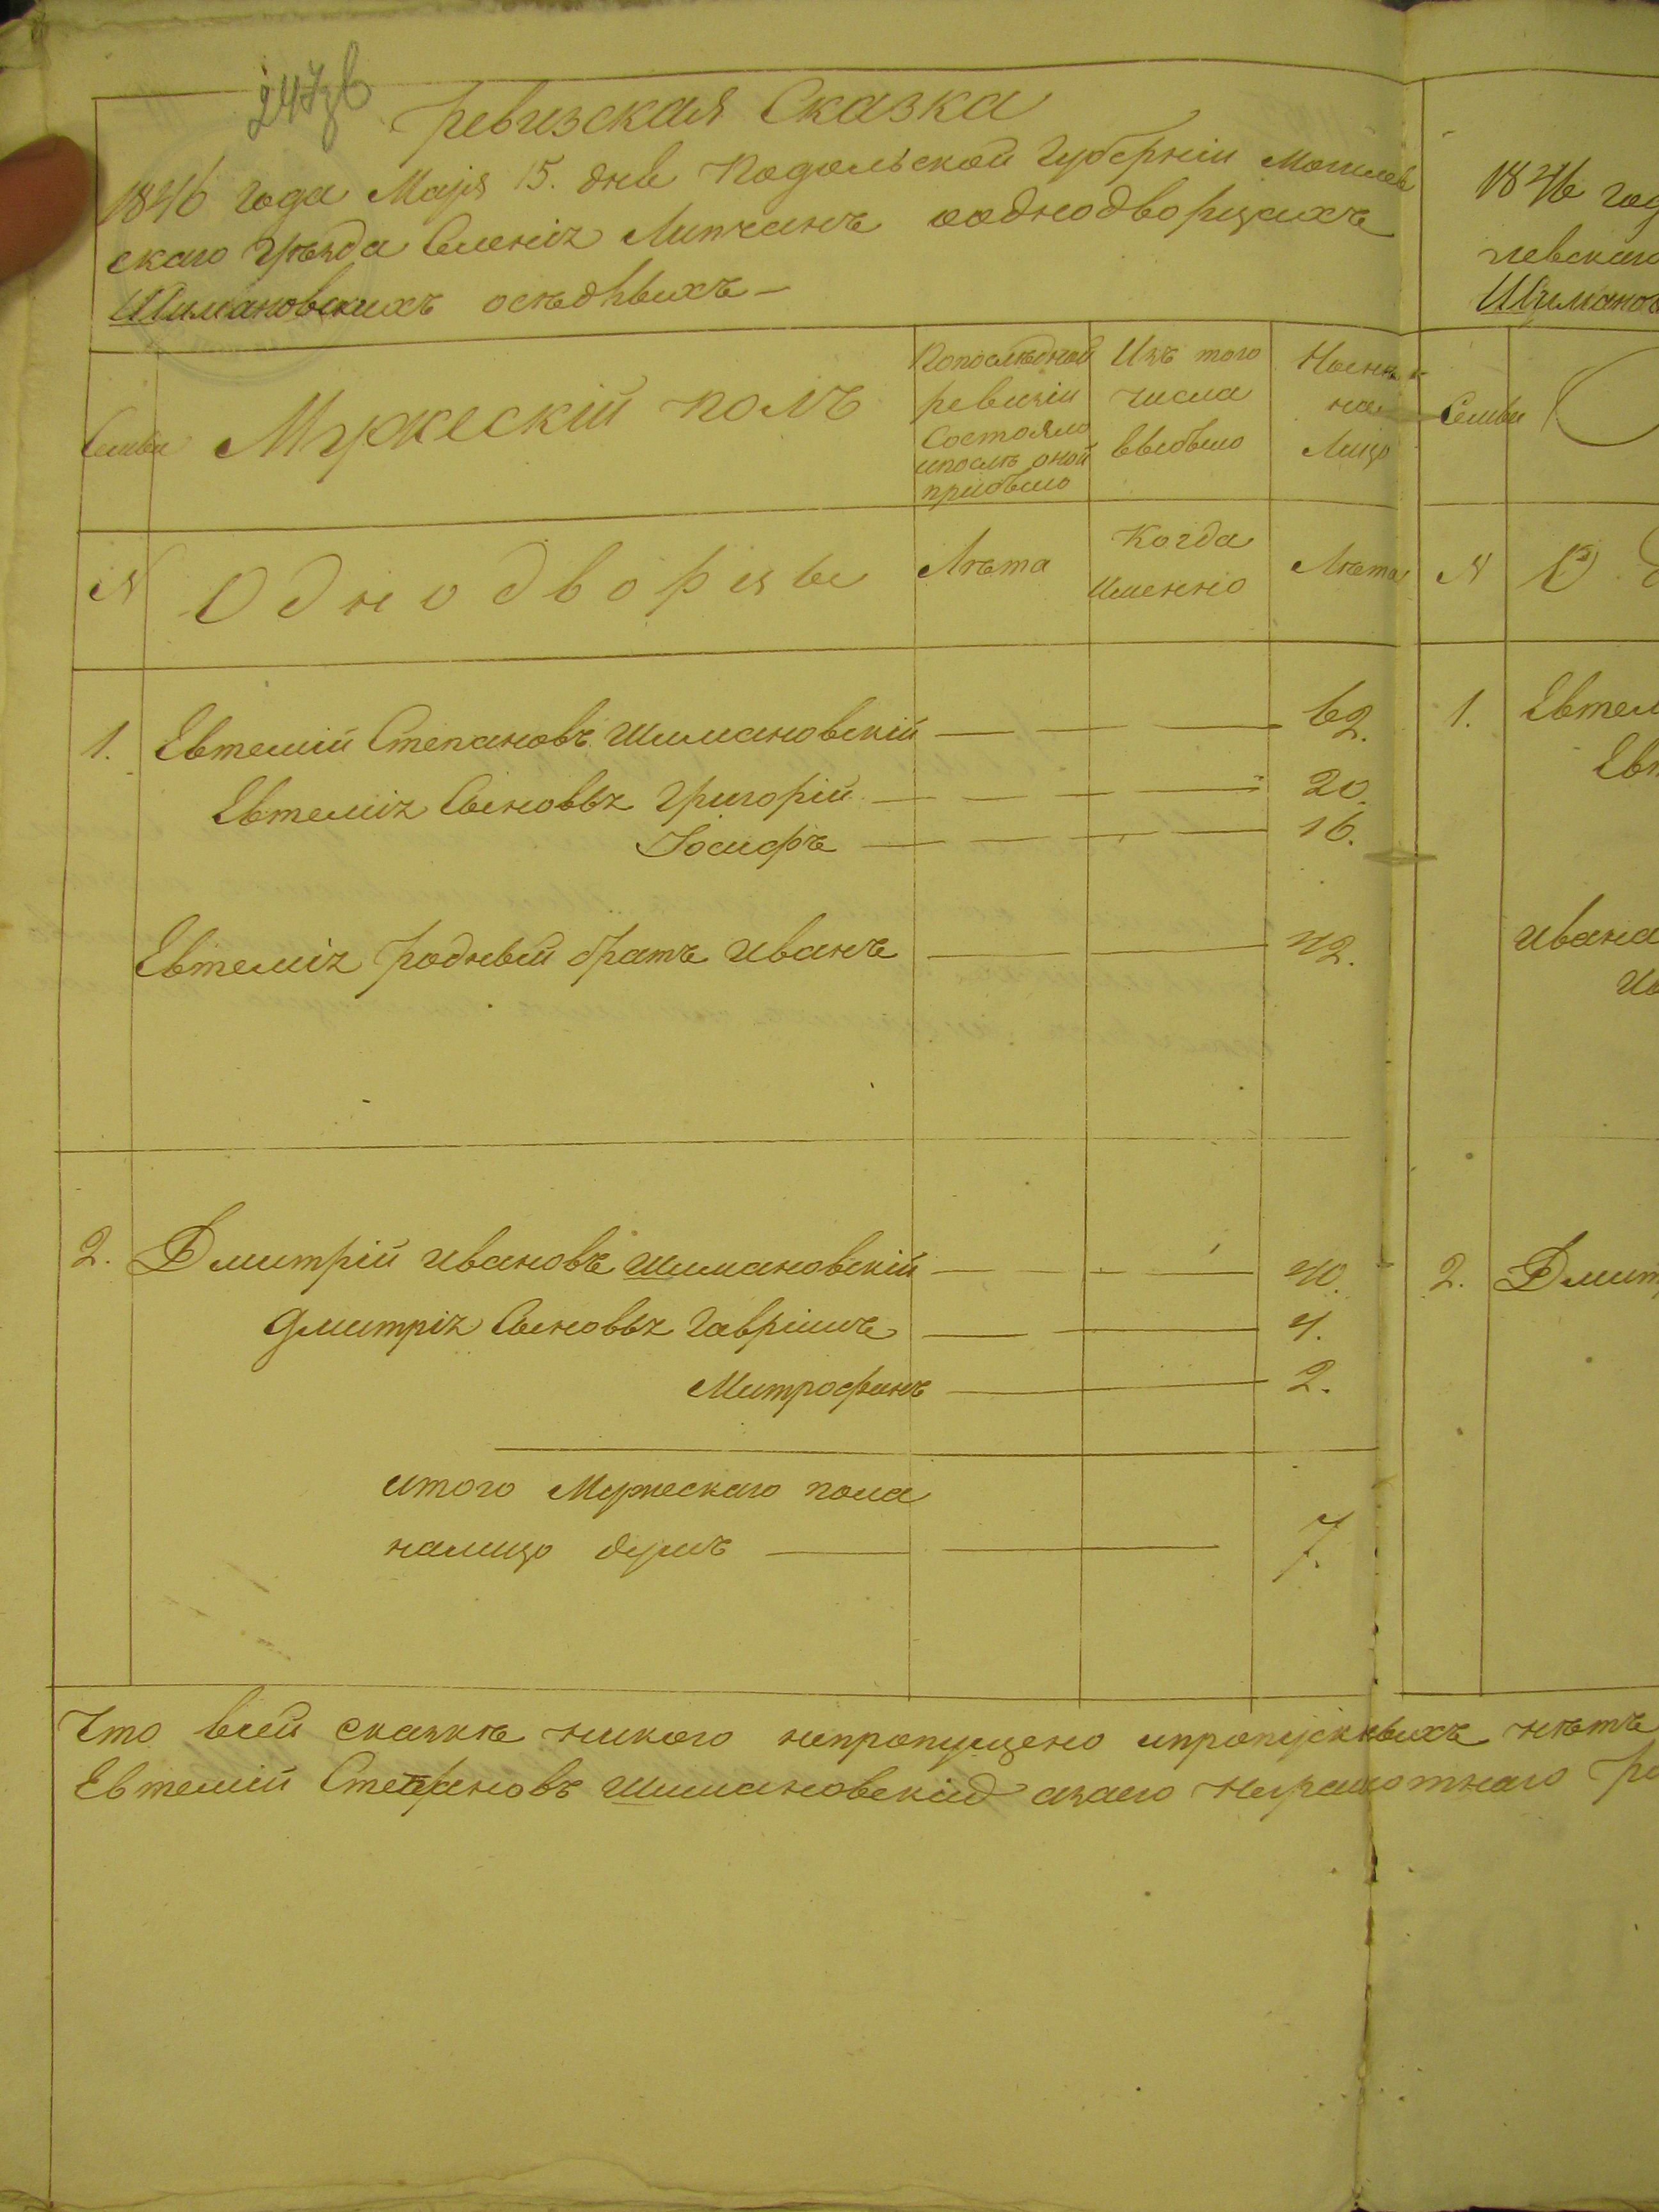 247зв
Ревизская Сказка
1846 года Маія 15. дня Подольской Губерніи Могилев
скаго Уѣзда Селенія Липчанъ о однодворцахъ
Шимановскихъ осѣдлыхъ —
Семьи
Мужескій полъ
По послѣдней
ревизіи
Состояло
и послѣ оной
прибыло
Изъ того
числа
выбыло
Нынѣ
на
Лицо
N
Однодворцы
Лѣта
Когда
Именно
Лѣта
1. Евтемій Степановъ Шимановскій — — — 62.
Евтемія Сыновья Григорій — — — 20.
Іосифъ — — — 16.
Евтемія родный братъ Иванъ — — 42.
2. Дмитрій Ивановъ Шимановскій — — — 40.
Дмитрія Сыновья Гавріилъ — — 4.
Митрофанъ — — 2.
итого Мужескаго пола
налицо душъ — — 7.
Что в сей сказкѣ никого непропущено и пропускныхъ нѣтъ
Евтемій Стефановъ Шимановскій а за его Неграмотнаго
1846 год
левскаго
Семьи
N
1. Евтем
Евт
Ивана
2. Дмит